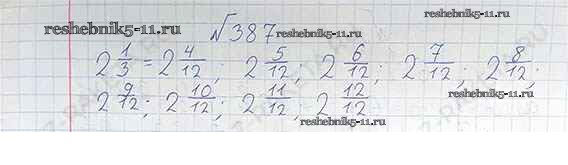 reshebnik5-11.ru
№387
reshebnik5-11.ru
2 1/3 = 2 4/12; 2 5/12; 2 6/12; 2 7/12; 2 8/12;
2 9/12; 2 10/12; 2 11/12; 2 12/12
reshebnik5-11.ru
reshebnik5-11.ru